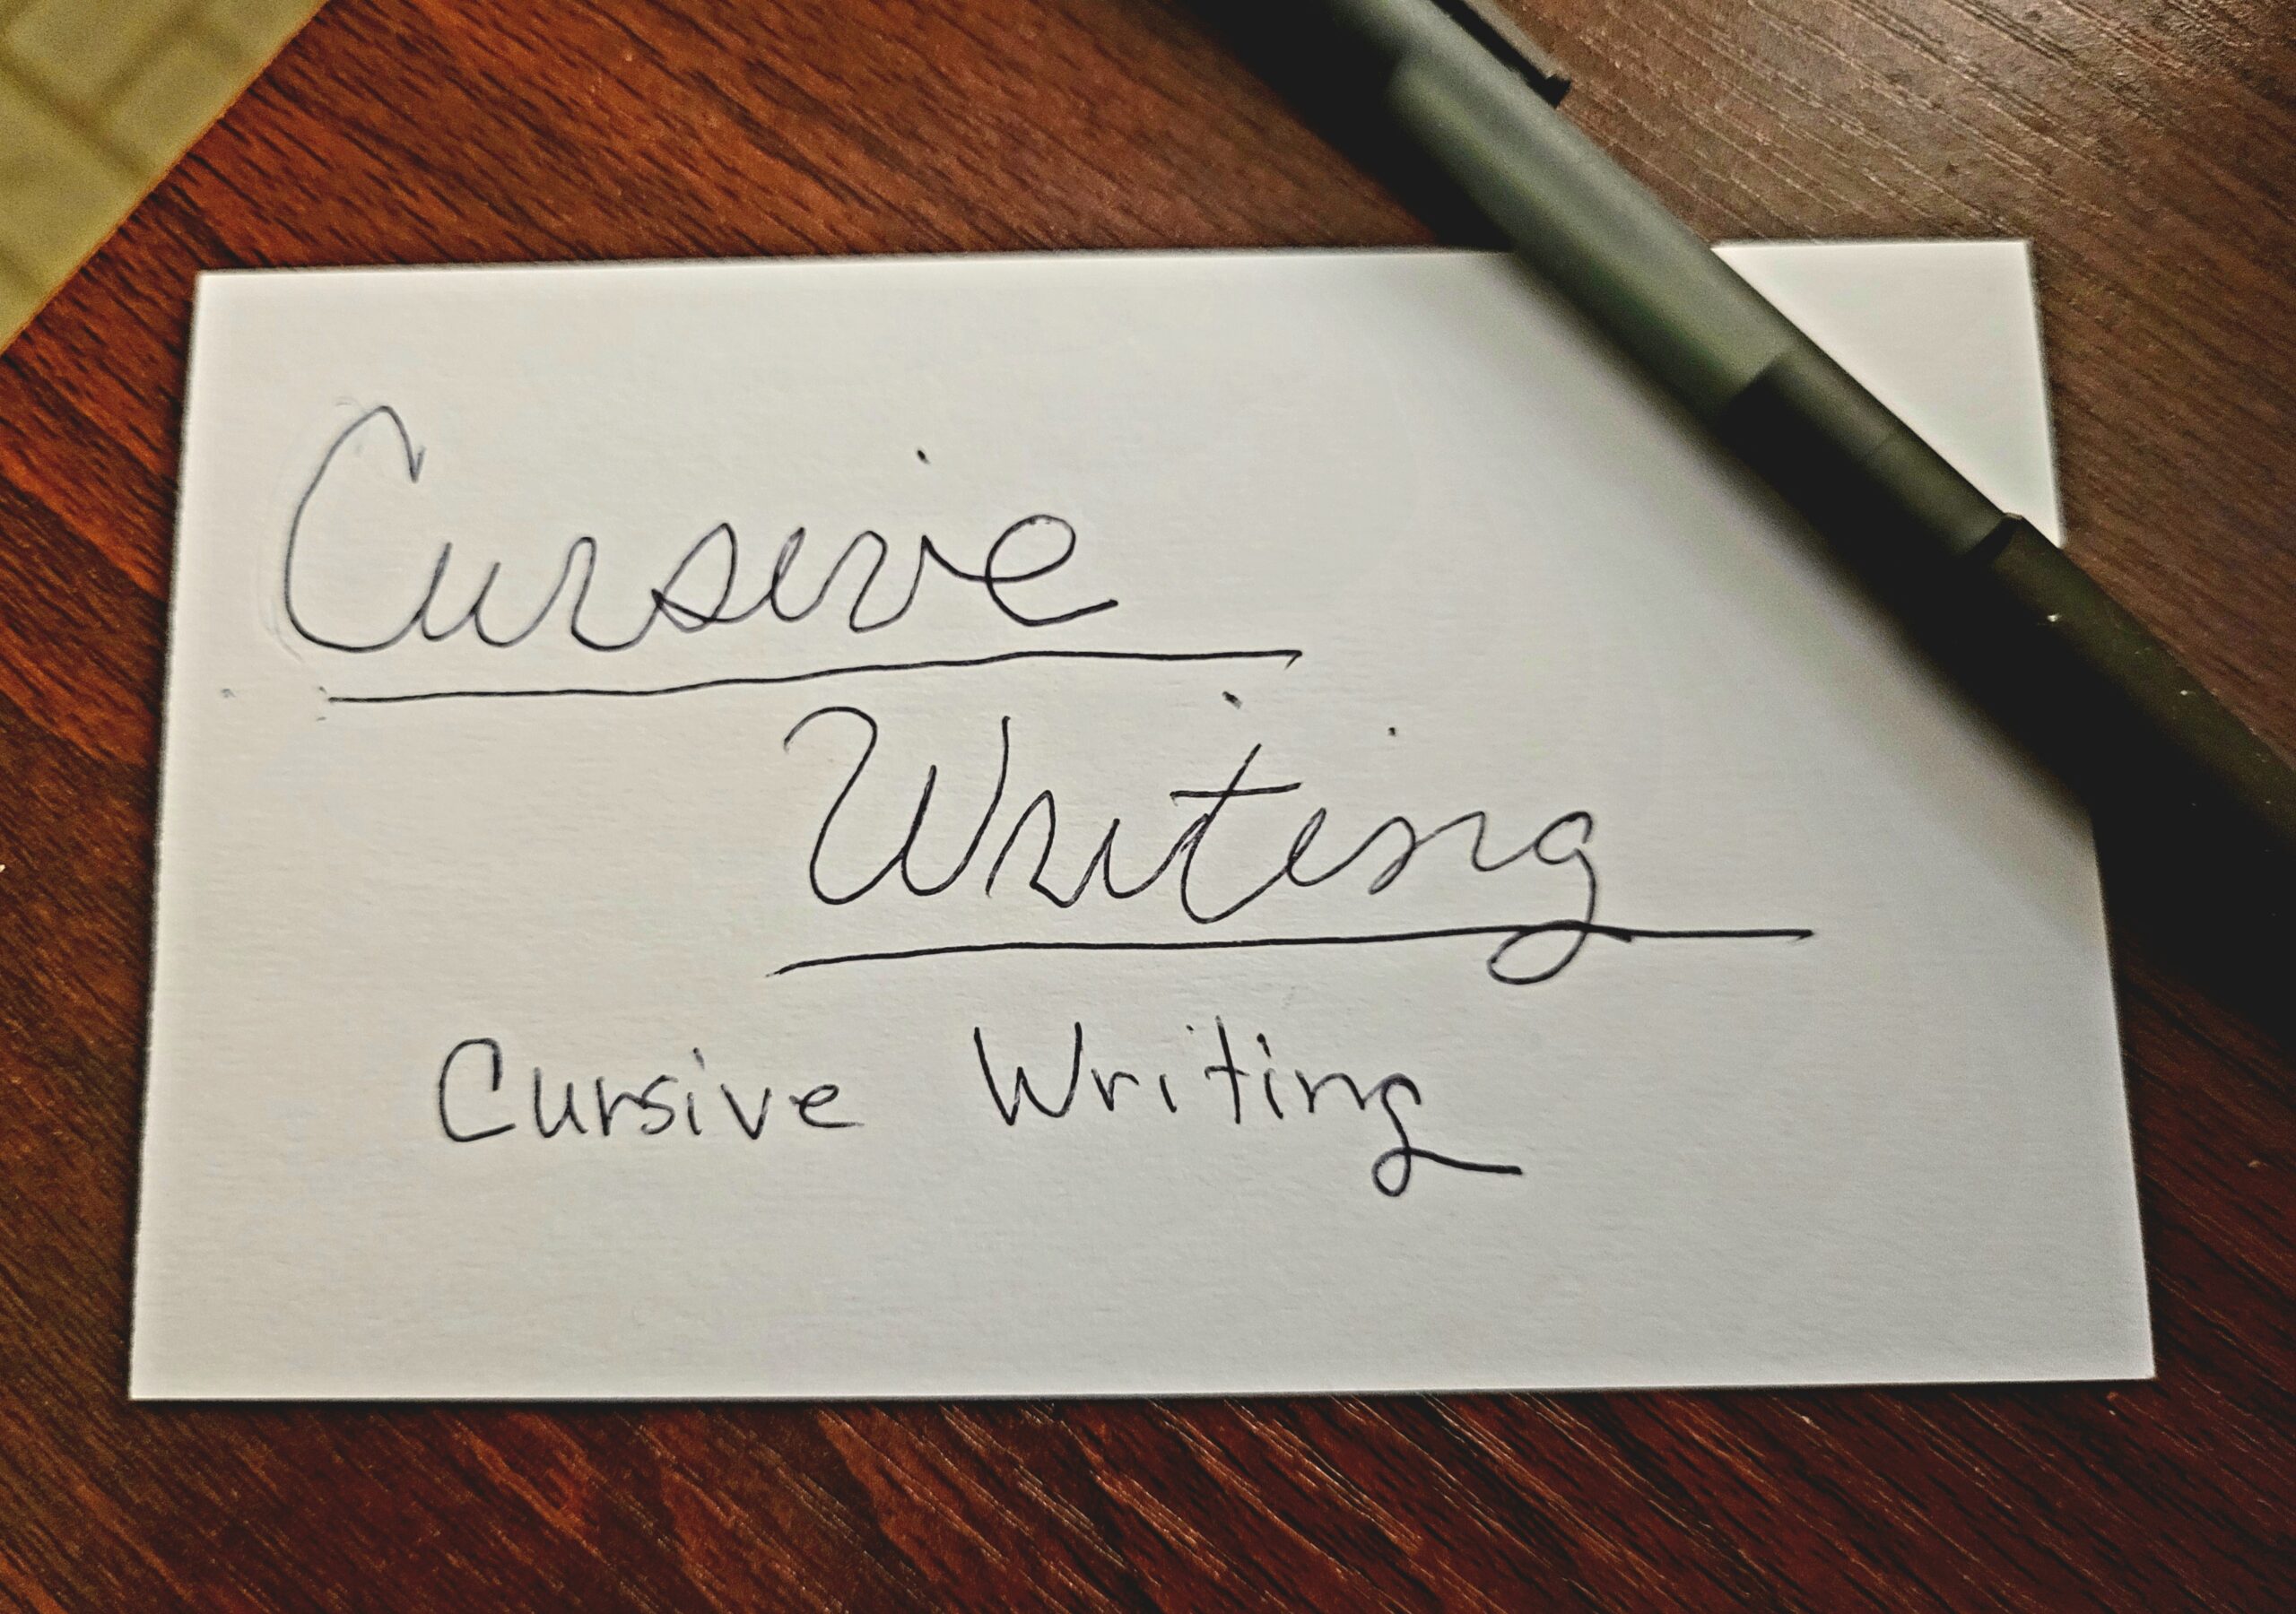 Cursive
Writing
Cursive Writing